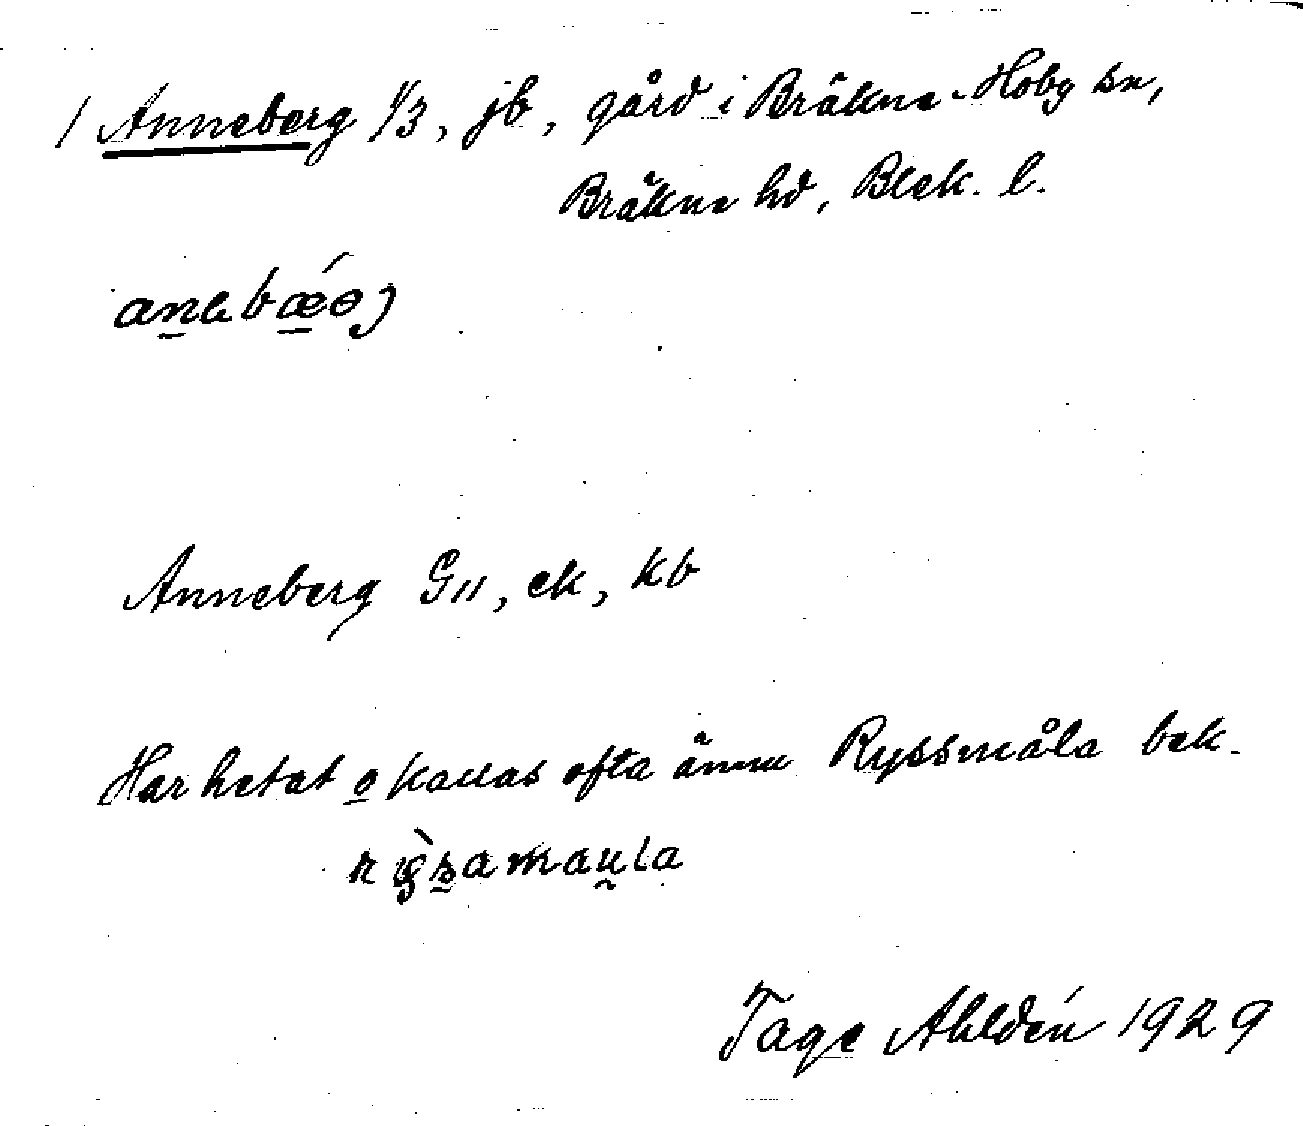 1 Anneberg 1/3, jb, gård i Bräkne-Hoby sn,
Bräkne hd, Blek. l.
anebǽəj
Anneberg G11, ek, kb
Har hetat o kallas ofta ännu Ryssmåla bek.
Tage Ahldén 1929